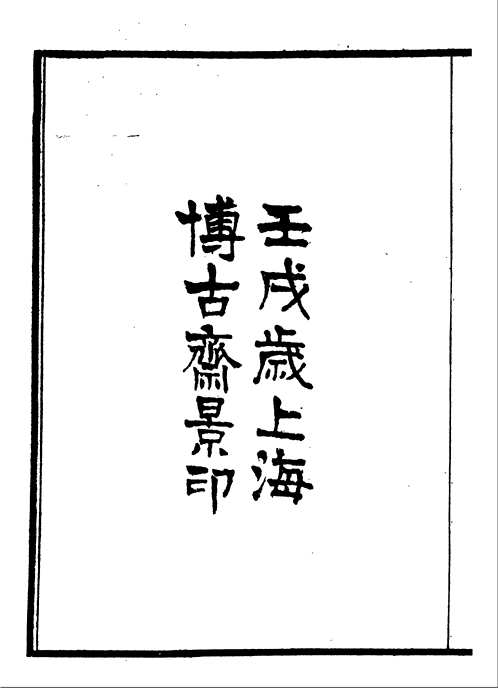 壬戌歲上海
博古齋景印